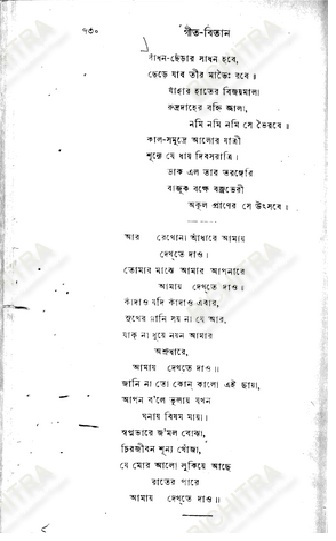 ৭৩০ গীত-বিতান
বাঁধন-ছেঁড়ার সাধন হবে,
ছেড়ে যাব তীর মাভৈঃ রবে ॥
যাঁহার হাতের বিজয়মালা
রুদ্রদাহের বহ্নি জ্বালা,
নমি নমি নমি সে ভৈরবে ॥
কাল-সমুদ্রে আলোর যাত্রী
শূন্যে যে ধায় দিবসরাত্রি।
ডাক এল তার তরঙ্গেরি
বাজুক বক্ষে বজ্রভেরী
অকূল প্রাণের সে উৎসবে ॥
আর রেখোনা আঁধারে আমায়
দেখ্‌তে দাও।
তোমার মাঝে আমার আপনারে
আমায় দেখ্‌তে দাও।
কাঁদাও যদি কাঁদাও এবার,
সুখের গ্লানি সয় না যে আর,
যাক্ না ধুয়ে নয়ন আমার
অশ্রুধারে,
আমায় দেখ্‌তে দাও ॥
জানি না তো কোন্ কালো এই ছায়া,
আপন ব'লে ভুলায় যখন
ঘনায় বিষম মায়া।
স্বপ্নভারে জ'মল বোঝা,
চিরজীবন শূন্য খোঁজা,
যে মোর আলো লুকিয়ে আছে
রাতের পারে
আমায় দেখ্‌তে দাও ॥
BICHITRA